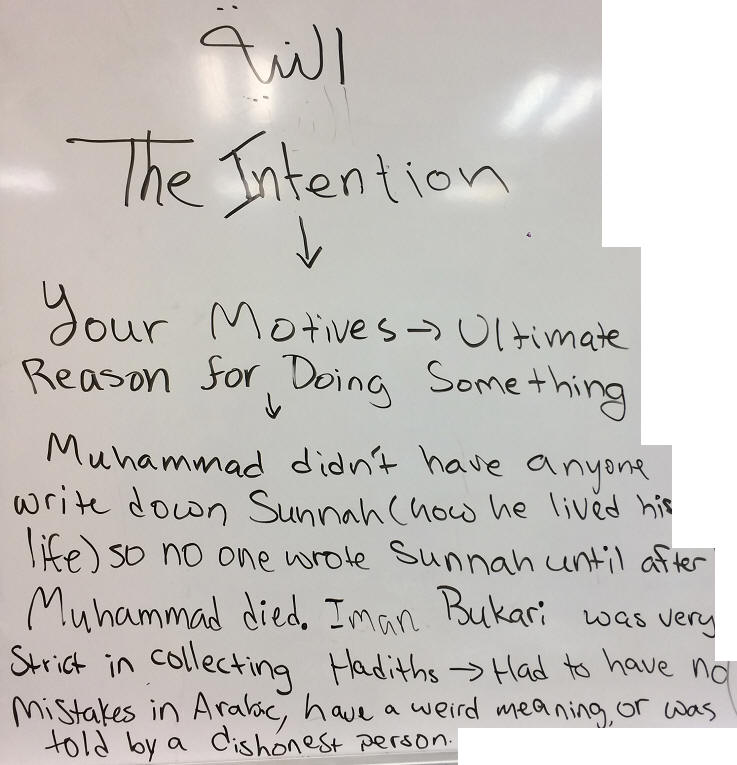 النية
The Intention
↓
Your Motives → Ultimate
Reason for Doing Something
↓
Muhammad didn't have anyone
write down Sunnah (how he lived his
life) so no one wrote Sunnah until after
Muhammad died. Iman Bukari was very
Strict in collecting Hadiths → Had to have no
Mistakes in Arabic, have a weird meaning, or was
told by a dishonest person.